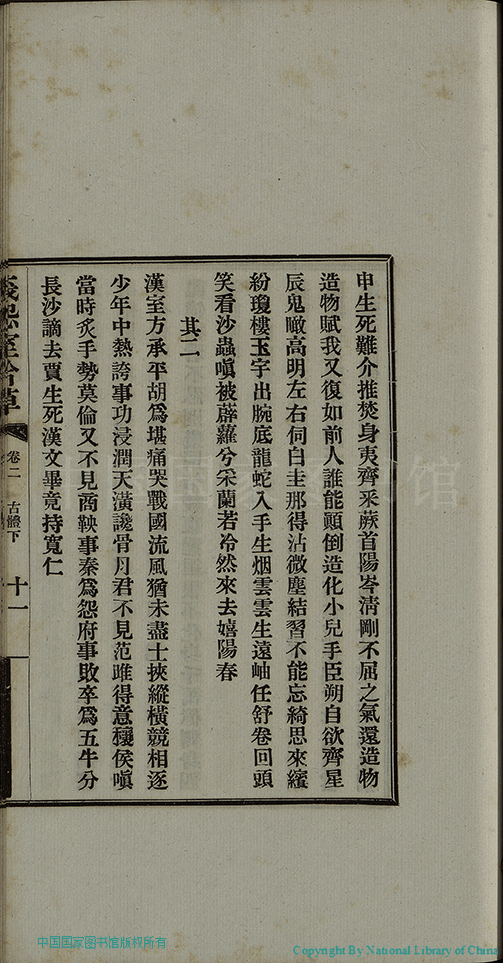 申生死難介推焚身夷齊采蕨首陽岑清剛不屈之氣還造物
造物賦我又復如前人誰能顛倒造化小兒手臣朔自欲齊星
辰鬼瞰高明左右伺白圭那得沾微塵結習不能忘綺思來繽
紛瓊樓玉宇出腕底龍蛇入手生烟雲雲生遠岫任舒卷回頭
笑看沙蟲嗔被薜蘿兮采蘭若冷然來去嬉陽春
其二
漢室方承平胡爲堪痛哭戰國流風猶未盡士挾縱橫競相逐
少年中熱誇事功浸潤天潢讒骨月君不見范雎得意穰侯嗔
當時炙手勢莫倫又不見商鞅事秦爲怨府事敗卒爲五牛分
長沙謫去賈生死漢文畢竟持寬仁
室吟草
卷二
古體下
十一
中国国家图书馆版权所有
Copyright By National Library of China